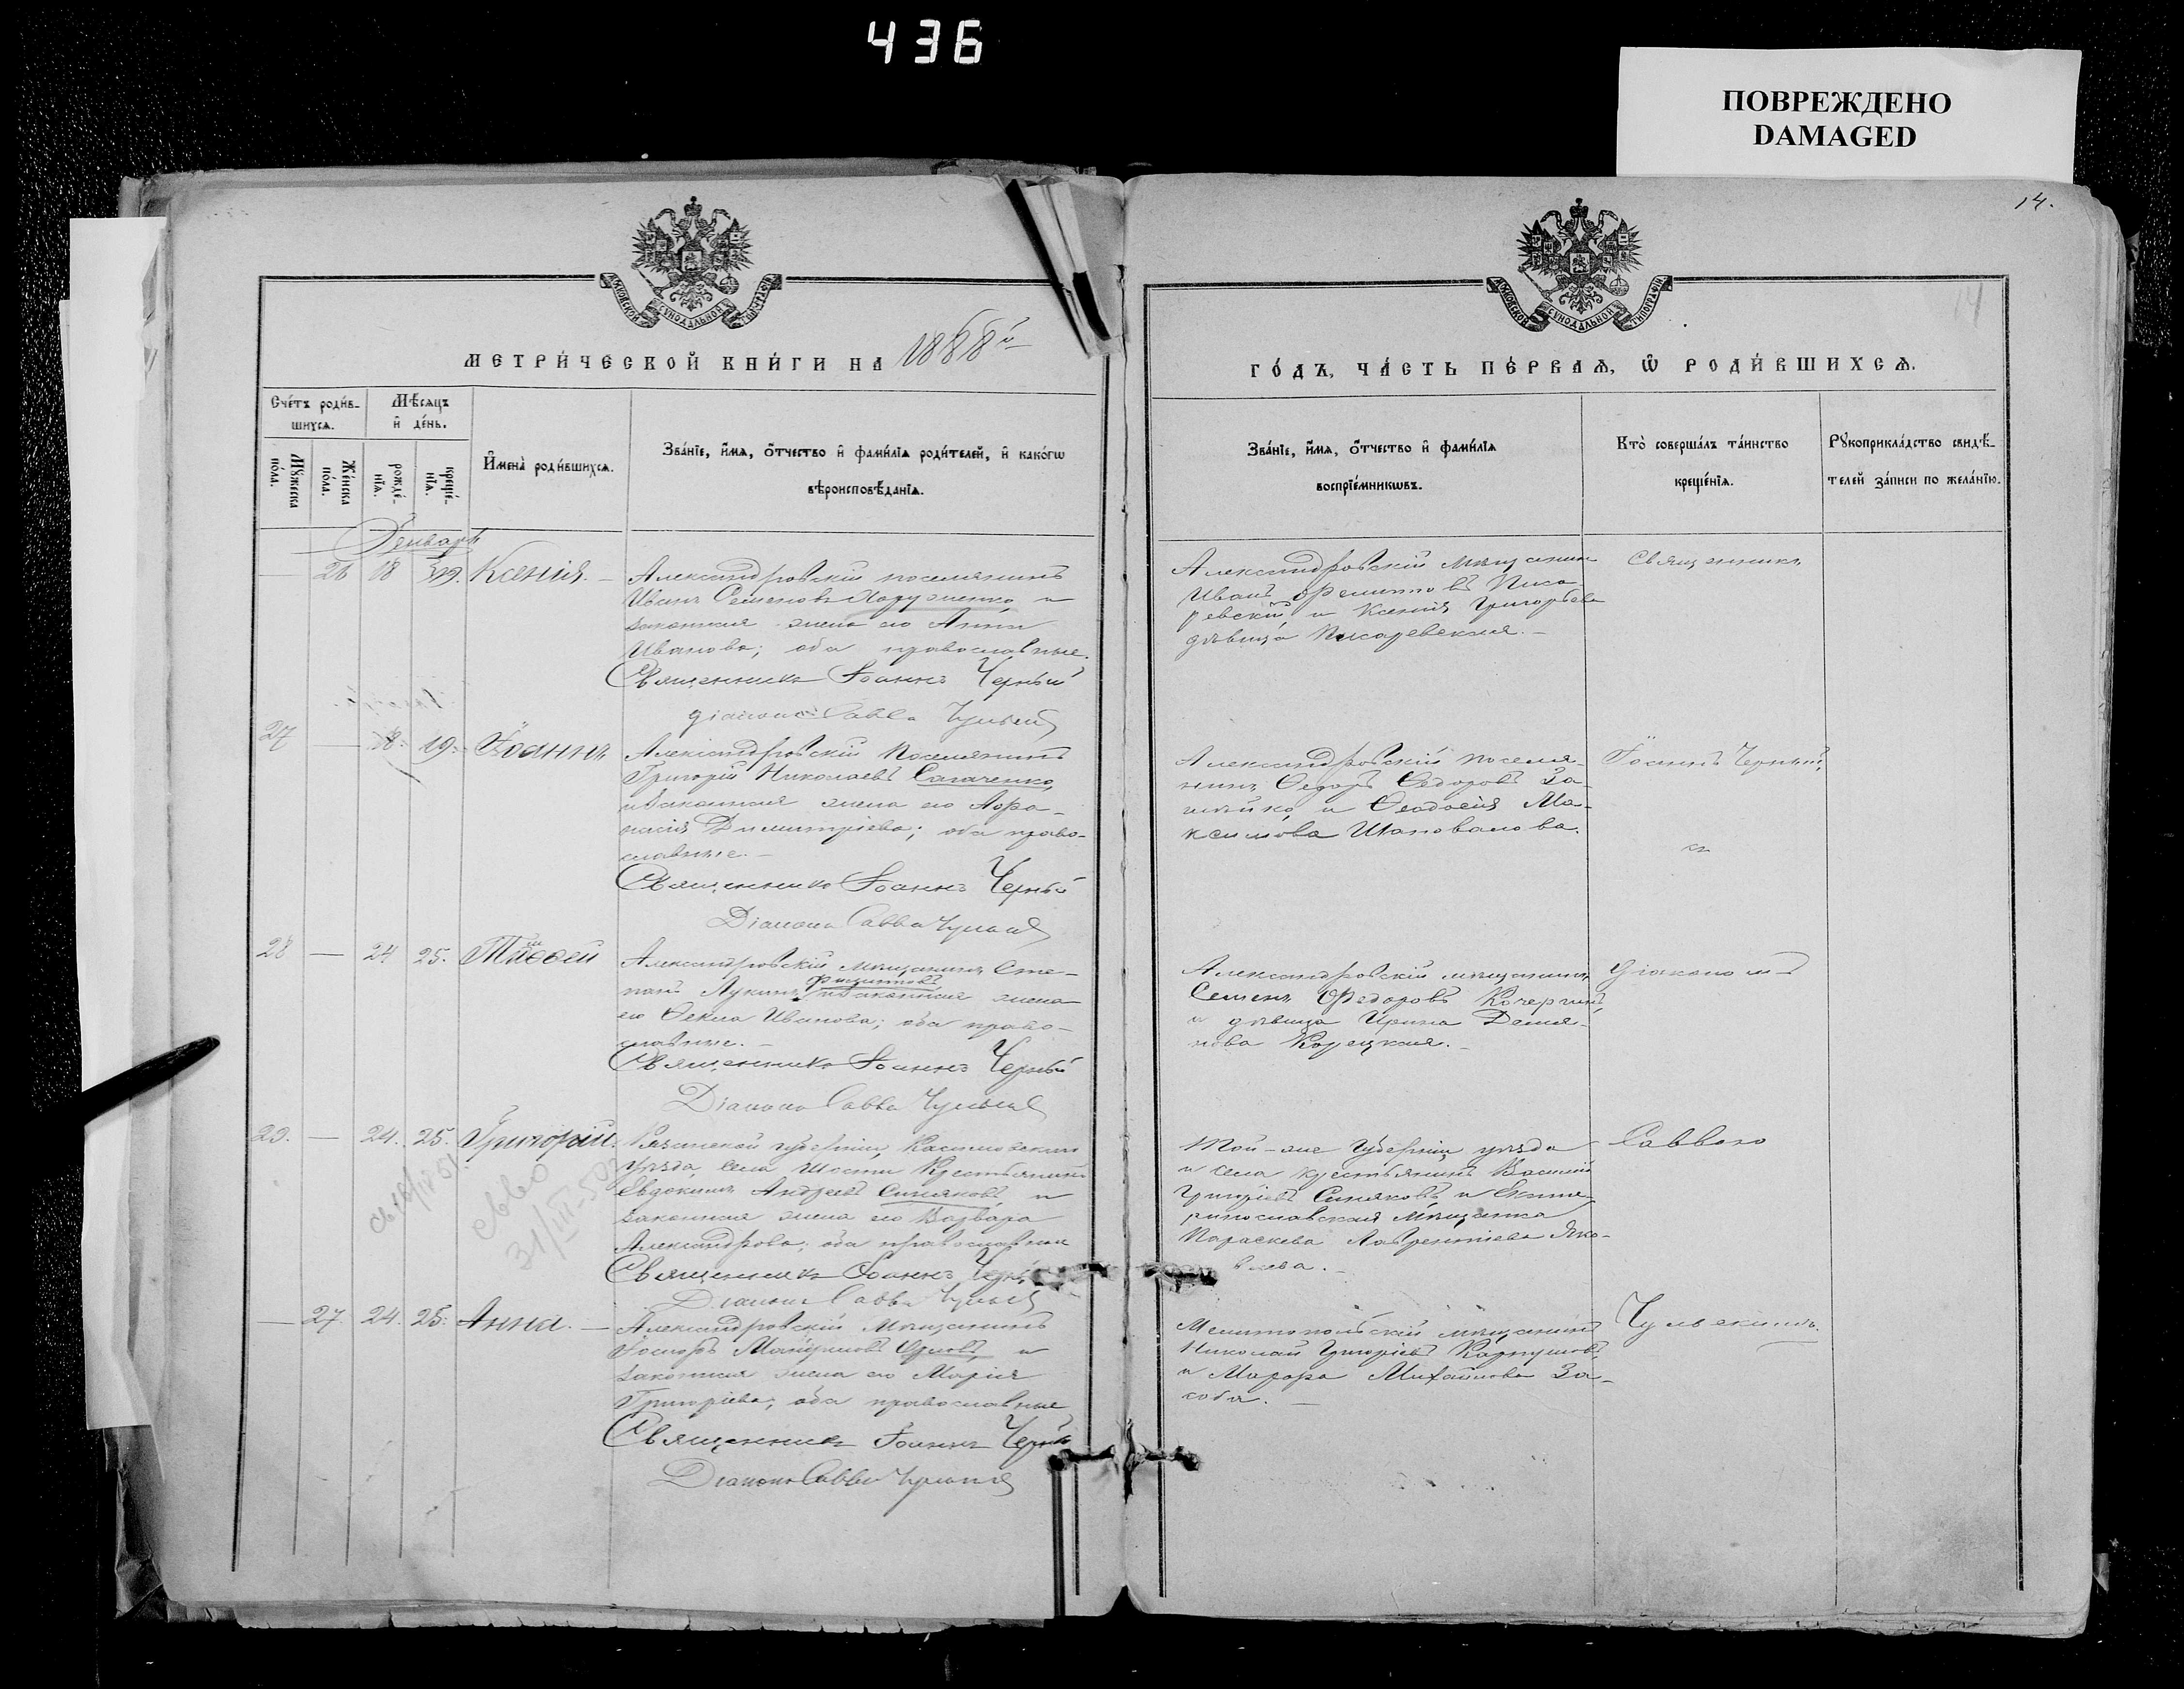 436
ПОВРЕЖДЕНО
DAMAGED
14.
14
МОСКОВСКОЙ СѴНОДАЛЬНОЙ ТИПОГРАФІИ
МОСКОВСКОЙ СѴНОДАЛЬНОЙ ТИПОГРАФІИ
МЕТРИ́ЧЕСКОЙ КНИ́ГИ НА 1888й
ГО́ДЪ, ЧА́СТЬ ПЕ́РВАѦ, Ѡ҆ РОДИ́ВШИХСѦ.
Сче́тъ роди́в-
шихсѧ.
Мꙋ́жеска по́ла.
Же́нска по́ла.
Мѣ́сѧцъ
и҆ де́нь.
рожде́-нїѧ.
креще́-нїѧ.
И҆мена̀ роди́вшихсѧ.
Зва́нїе, и҆́мѧ, о҆́тчество и҆ фами́лїѧ роди́телей, и҆ како́гѡ
вѣроисповѣ́данїѧ.
Зва́нїе, и҆́мѧ, о҆́тчество и҆ фами́лїѧ
воспрїе́мникѡвъ.
Кто̀ соверша́лъ та́инство
креще́нїѧ.
Рꙋкоприкла́дство свидѣ́-
телей за́писи по жела́нїю.
Январь
— 26 18 19. Ксенія. —
Александровскій поселянинъ
Иванъ Семеновъ и
законная жена его Анна
Иванова; оба православные.
Священникъ Іоаннъ Черный
діаконъ Савва
Александровскій мѣщанинъ
Иванъ Писа-
ревскій и Ксенія Григорьева
дѣвица Писаревская. —
Священникъ
27 — 18. 19. Іоаннъ
Александровскій Поселянинъ
Григорій Николаевъ Сагаченко,
и законная жена его Аѳа-
насія Димитріева; оба право-
славные. —
Священникъ Іоаннъ Черный
Діаконъ Савва
Александровскій поселя-
нинъ Ѳедоръ Ѳедоровъ За-
и Ѳеодосія Ма-
ксимова Шаповалова.
Іоаннъ Черный,
съ
28 — 24 25.
Александровскій мѣщанинъ Сте-
панъ Лукинъ и законная жена
его Ѳекла Иванова; оба право-
славные. —
Священникъ Іоаннъ Черный
Діаконъ Савва
Александровскій мѣщанинъ
Семенъ Ѳедоровъ Кочергинъ,
и дѣвица Ирина Демья-
нова Корецкая. —
Діакономъ
29. — 24. 25. Григорій.
Рязанской губерніи, Касимовскаго
уѣзда, села Шости Крестьянинъ
Евдокимъ Андреевъ Синяковъ, и
законная жена его Варвара
Александрова; оба православные
Священникъ Іоаннъ
Діаконъ Савва
св-во
31/III-50
Той-же Губерніи, уѣзда
и села крестьянинъ Василій
Григорьевъ Синяковъ и Екате-
ринославская Мѣщанка
Параскева Лаврентіева Яко-
влева. —
Саввою
— 27. 24. 25. Анна. —
Александровскій Мѣщанинъ
и
законная жена его Марія
Григоріева; оба православные
Священникъ Іоаннъ Черный
Діаконъ Савва
Мелитопольскій мѣщанинъ
Николай Григоріевъ Карпушовъ,
и Марѳа Михайлова За-
соба. —